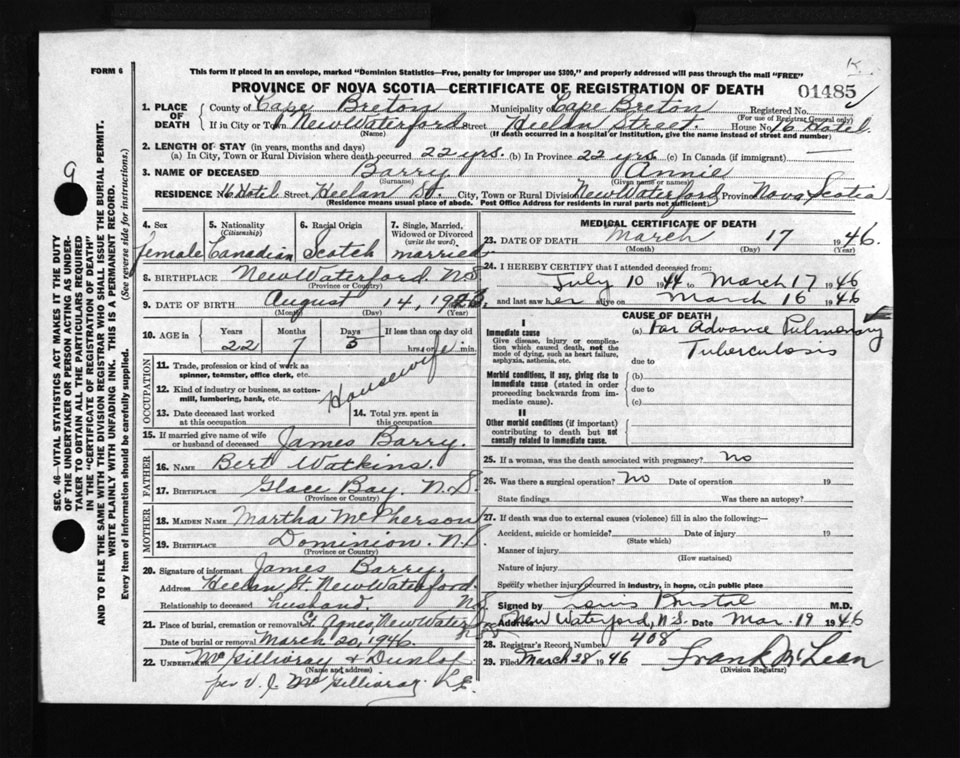 FORM 6
This form if placed in an envelope, marked "Dominion Statistics—Free, penalty for improper use $300," and properly addressed will pass through the mail "FREE"
K.
PROVINCE OF NOVA SCOTIA—CERTIFICATE OF REGISTRATION OF DEATH
01485
1. PLACE OF DEATH
County of Cape Breton Municipality of Cape Breton Registered No.
(For use of Registrar General only)
If in City or Town New Waterford Street Heelan Street. House No. 16 Hotel.
(Name) (If death occurred in a hospital or institution, give the name instead of street and number)
2. LENGTH OF STAY (in years, months and days)
(a) In City, Town or Rural Division where death occurred 22 yrs. (b) In Province 22 yrs. (c) In Canada (if immigrant) —
3. NAME OF DECEASED Barry, Annie
(Surname) (Given name or names)
RESIDENCE No. 16 Hotel Street Heelan St. City, Town or Rural Division New Waterford Province Nova Scotia
(Residence means usual place of abode. Post Office Address for residents in rural parts not sufficient)
4. Sex 5. Nationality (Citizenship) 6. Racial Origin 7. Single, Married, Widowed or Divorced (write the word)
female Canadian Scotch married
8. BIRTHPLACE New Waterford. N.S
(Province or Country)
9. DATE OF BIRTH August 14, 1923.
(Month) (Day) (Year)
10. AGE in Years Months Days If less than one day old
22 7 5 hrs. or min.
OCCUPATION
11. Trade, profession or kind of work as spinner, teamster, office clerk, etc.
Housewife
12. Kind of industry or business, as cotton-mill, lumbering, bank, etc.
13. Date deceased last worked at this occupation
14. Total yrs. spent in this occupation
15. If married give name of wife or husband of deceased James Barry.
FATHER
16. NAME Bert Watkins.
17. BIRTHPLACE Glace Bay. N.S.
(Province or Country)
MOTHER
18. MAIDEN NAME Martha McPherson
19. BIRTHPLACE Dominion. N.S.
(Province or Country)
20. Signature of informant James Barry.
Address Heelan St. New Waterford.
Relationship to deceased husband. N.S.
21. Place of burial, cremation or removal St. Agnes, New Waterford
Date of burial or removal March 20, 1946.
22. UNDERTAKER McGillivray & Dunlop
(Name and address)
per V. J. McGillivray.
MEDICAL CERTIFICATE OF DEATH
23. DATE OF DEATH March 17 1946.
(Month) (Day) (Year)
24. I HEREBY CERTIFY that I attended deceased from:
July 10 1944 to March 17 1946
and last saw her alive on March 16 1946
CAUSE OF DEATH
I
Immediate cause (a) Far Advance Pulmonary
Give disease, injury or complication which caused death, not the mode of dying, such as heart failure, asphyxia, asthenia, etc.
due to Tuberculosis
Morbid conditions, if any, giving rise to immediate cause (stated in order proceeding backwards from immediate cause).
(b)
due to
(c)
II
Other morbid conditions (if important) contributing to death but not causally related to immediate cause.
25. If a woman, was the death associated with pregnancy? No
26. Was there a surgical operation? No Date of operation 19
State findings Was there an autopsy?
27. If death was due to external causes (violence) fill in also the following:—
Accident, suicide or homicide? Date of injury 19
(State which)
Manner of injury
(How sustained)
Nature of injury
Specify whether injury occurred in industry, in home, or in public place
Signed by M.D.
Address New Waterford, N.S. Date Mar. 19 1946
28. Registrar's Record Number 408
29. Filed March 28 1946 Frank McLean
(Division Registrar)
SEC. 46—VITAL STATISTICS ACT MAKES IT THE DUTY
OF THE UNDERTAKER OR PERSON ACTING AS UNDER-
TAKER TO OBTAIN ALL THE PARTICULARS REQUIRED
IN THE "CERTIFICATE OF REGISTRATION OF DEATH"
AND TO FILE THE SAME WITH THE DIVISION REGISTRAR WHO SHALL ISSUE THE BURIAL PERMIT.
WRITE PLAINLY WITH UNFADING INK. THIS IS A PERMANENT RECORD.
Every item of information should be carefully supplied. (See reverse side for instructions.)
9